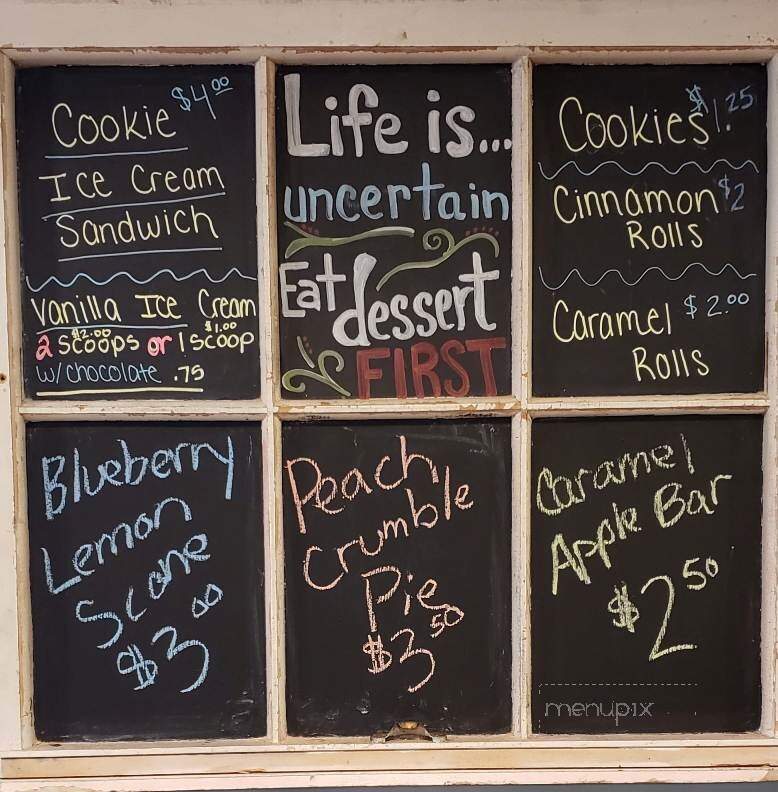 Cookie $4.00
Ice Cream
Sandwich
Vanilla Ice Cream
$2.00 $1.00
2 scoops or 1 scoop
w/ chocolate .75
Life is...
uncertain
Eat dessert
FIRST
Cookies $1.25
Cinnamon $2
Rolls
Caramel $2.00
Rolls
Blueberry
Lemon
Scone
$3.00
Peach
Crumble
Pie
$3.50
Caramel
Apple Bar
$2.50
menupix